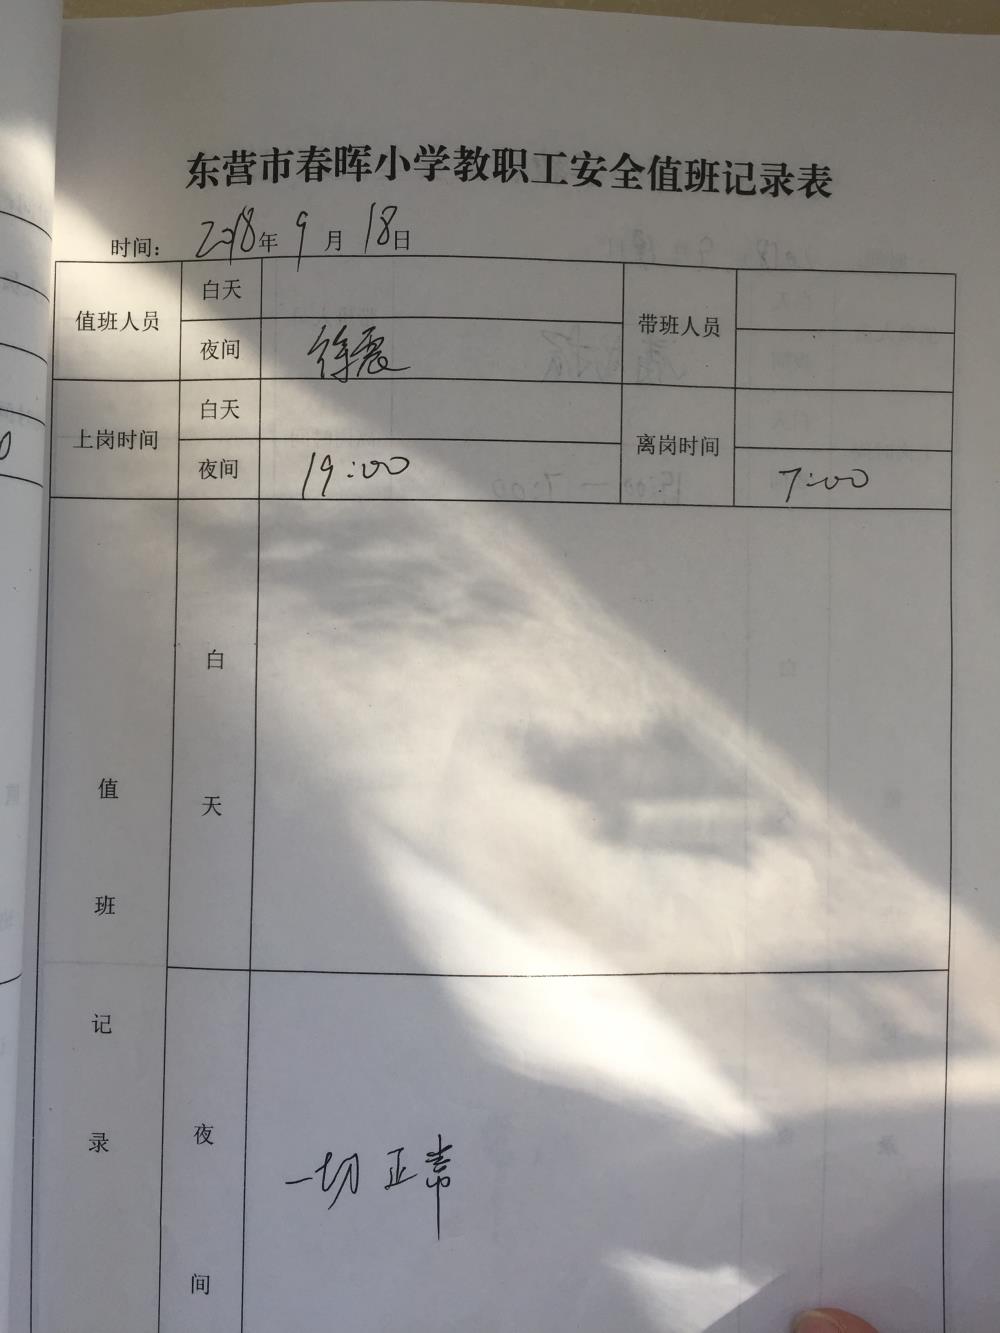 东营市春晖小学教职工安全值班记录表
时间：2018年9月18日
值班人员 白天 带班人员
夜间 徐震
上岗时间 白天 离岗时间
夜间 19:00 7:00
值班记录
白天
夜间 一切正常